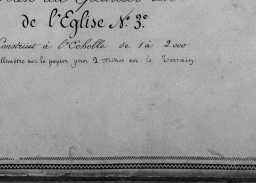 de l'Église N.º 3º
Construit à l'Echelle de 1 à 2.000
sur le papier pour 2 mètres sur le Terrain